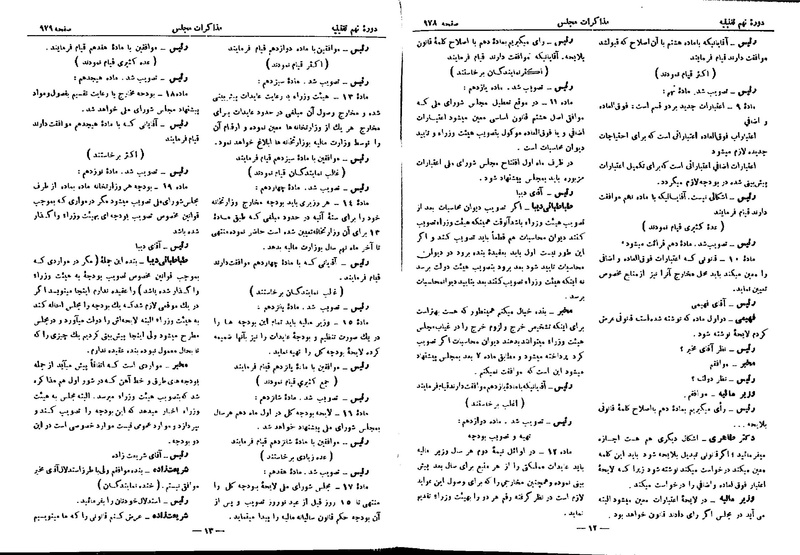 دوره نهم تقنینیه
مذاکرات مجلس
صفحه ۹۷۸
رئیس ـ آقایانیکه باماده هشتم با آن اصلاح که قبولشد
موافقت دارند قیام فرمایند
( اکثر قیام نمودند )
رئیس ـ تصویب شد. مادهٔ نهم:
مادهٔ ۹ ـ اعتبارات جدید بر دو قسم است: فوق‌العاده
و اضافی
اعتبارات فوق‌العاده اعتباراتی است که برای احتیاجات
جدیده لازم میشود
اعتبارات اضافی اعتباراتی است که برای تکمیل اعتبارات
پیش‌بینی شده در بودجه لازم میگردد.
رئیس ـ اشکالی نیست. آقایانیکه با ماده نهم موافقت
دارند قیام فرمایند
( عدهٔ کثیری قیام نمودند )
رئیس ـ تصویب شد. مادهٔ دهم قرائت میشود:
مادهٔ ۱۰ ـ قانونی که اعتبارات فوق‌العاده و اضافی
را معین میکند باید محل مخارج آنرا نیز از منابع مخصوص
تعیین نماید.
رئیس ـ آقای فهیمی
فهیمی ـ در اول ماده که نوشته شده است قانونی عرض
کردم لایحهٔ نوشته شود.
رئیس ـ نظر آقای مخبر ؟
مخبر ـ موافقم
رئیس ـ نظر دولت ؟
وزیر مالیه ـ موافقم.
رئیس ـ رأی میگیریم بمادهٔ دهم با اصلاح کلمهٔ قانونی
بلایحه ...
دکتر طاهری ـ اشکال دیگری هم هست اجازه
میفرمائید ؟ اگر قانونی تبدیل بلایحه شود باید این کلمه
معین میکند درخواست میکند نوشته شود زیرا که لایحهٔ
اعتبار فوق‌العاده و اضافی را درخواست میکند.
وزیر مالیه ـ در لایحهٔ اعتبارات معین میشود البته
می آید در مجلس اگر رأی دادند قانون خواهد بود.
رئیس ـ رأی میگیریم بمادهٔ دهم با اصلاح کلمهٔ قانون
بلایحه. آقایانیکه موافقت دارند قیام فرمایند
( اکثر نمایندگان برخاستند )
رئیس ـ تصویب شد. ماده یازدهم:
ماده ۱۱ ـ در موقع تعطیل مجلس شورای ملی که
موافق اصل هشتم قانون اساسی معین میشود اعتبارات
اضافی و یا فوق‌العاده موکول بتصویب هیئت وزراء و تأیید
دیوان محاسبات است.
در ظرف ماه اول افتتاح مجلس شورای ملی اعتبارات
مزبوره باید بمجلس پیشنهاد شود.
رئیس ـ آقای دیبا
طباطبائی دیبا ـ اگر تصویب دیوان محاسبات بعد از
تصویب هیئت وزراء باشد آنوقت همینکه هیئت وزراء تصویب
کنند دیوان محاسبات هم قطعاً باید تصویب کنند و اگر
این طور نیست اول باید بعقیدهٔ بنده برود در دیوان
محاسبات تأیید شود بعد برود بتصویب هیئت دولت برسد
نه اینکه هیئت وزراء تصویب کنند بعد بتأیید دیوان محاسبات
برسد.
مخبر ـ بنده خیال میکنم همینطور که هست بهتر است
برای اینکه تشخیص خرج و لزوم خرج را در غیاب مجلس
هیئت وزراء میتوانند بدهند دیوان محاسبات اگر تصویب
کرد پرداخته میشود و مطابق ماده ۷ بعد بمجلس پیشنهاد
میشود این است که موافقت نمیکنم.
رئیس ـ آقایانیکه با مادهٔ یازدهم موافقت دارند قیام فرمایند
( اغلب برخاستند )
رئیس ـ تصویب شد. مادهٔ دوازدهم:
تهیه و تصویب بودجه
مادهٔ ۱۲ ـ در اوائل نیمهٔ دوم هر سال وزیر مالیه
باید عایدات مملکتی را از هر منبع برای سال بعد پیش
بینی نموده و همچنین مخارجی را که برای وصول این عواید
لازم است در نظر گرفته رقم هر دو را بهیئت وزراء تقدیم
ـ ۱۲ ـ
دوره نهم تقنینیه
مذاکرات مجلس
صفحه ۹۷۹
رئیس ـ موافقین با مادهٔ دوازدهم قیام فرمایند
( اکثر قیام نمودند )
رئیس ـ تصویب شد. مادهٔ سیزدهم:
مادهٔ ۱۳ ـ هیئت وزراء به رعایت عایدات پیش بینی
شده و مخارج وصول آن مبلغی در حدود عایدات برای
مخارج هر یک از وزارتخانه‌ها معین نموده و ارقام آن
را توسط وزارت مالیه بوزارتخانه‌ها ابلاغ خواهد نمود.
رئیس ـ موافقین با مادهٔ سیزدهم قیام فرمایند
( غالب نمایندگان قیام نمودند )
رئیس ـ تصویب شد. مادهٔ چهاردهم:
مادهٔ ۱۴ ـ هر وزیری باید بودجه مخارج وزارتخانه
خود را برای سنهٔ آتیه در حدود مبلغی که طبق مادهٔ
۱۳ برای آن وزارتخانه تعیین شده است حاضر نموده منتهی
تا آخر ماه نهم سال بوزارت مالیه بدهد.
رئیس ـ آقایانی که با مادهٔ چهاردهم موافقت دارند
قیام فرمایند.
( غالب نمایندگان برخاستند )
رئیس ـ تصویب شد. مادهٔ پانزدهم:
مادهٔ ۱۵ ـ وزیر مالیه باید تمام این بودجه ها را
در یک صورت تنظیم و بودجهٔ عایدات را نیز بآنها ضمیمه
کرده لایحهٔ بودجه کل را تهیه نماید.
رئیس ـ موافقین با مادهٔ پانزدهم قیام فرمایند
( جمع کثیری قیام نمودند )
رئیس ـ تصویب شد. مادهٔ شانزدهم:
مادهٔ ۱۶ ـ لایحه بودجه کل در اول ماه دهم هر سال
بمجلس شورای ملی پیشنهاد خواهد شد.
رئیس ـ موافقین با مادهٔ شانزدهم قیام فرمایند
( عده زیادی برخاستند )
رئیس ـ تصویب شد. مادهٔ هفدهم:
مادهٔ ۱۷ ـ مجلس شورای ملی لایحهٔ بودجه کل را
منتهی تا ۱۵ روز قبل از عید نوروز تصویب و پس از
آن بودجه حکم قانون سالیانه مالیه را پیدا مینماید.
رئیس ـ موافقین با مادهٔ هفدهم قیام فرمایند.
( عده کثیری قیام نمودند )
رئیس ـ تصویب شد. مادهٔ هیجدهم:
ماده ۱۸ـ بودجه مخارج با رعایت تقسیم بفصول ومواد
پیشنهاد مجلس شورای ملی خواهد شد.
رئیس ـ آقایانی که با مادهٔ هیجدهم موافقت دارند
قیام فرمایند
( اکثر برخاستند )
رئیس ـ تصویب شد. مادهٔ نوزدهم:
مادهٔ ۱۹ ـ بودجه هر وزارتخانه ماده بماده از طرف
مجلس شورای ملی تصویب میشود مگر در مواردی که بموجب
قوانین مخصوص تصویب بودجه ای بهیئت وزراء واگذار
شده باشد
رئیس ـ آقای دیبا
طباطبائی دیبا ـ بنده این جمله ( مگر در مواردی که
بموجب قوانین مخصوص تصویب بودجهٔ به هیئت وزراء
واگذار شده باشد ) را عقیده ندارم اینجا مینویسد اگر
در یک موقعی لازم شد که یک بودجه را مجلس احاله کند
به هیئت وزراء البته لایحه‌اش را دولت میآورد و در مجلس
مطرح میشود ولی اینجا پیش بینی بکنیم یک چیزی را که
تا بحال معمول نبوده بنده عقیده ندارم.
مخبر ـ مواردی است که اتفاقاً پیش میآید از جمله
بودجه‌های طرق و خط آهن که در شور اول هم مذاکره
شد که بتصویب هیئت وزراء میرسد. البته مجلس به هیئت
وزراء اختیار میدهد که این بودجه را تصویب کنند و
بپردازند و موارد عمومی نیست موارد خصوصی است در این
بودجه.
رئیس ـ آقای شریعت زاده
شریعت‌زاده ـ بنده موافقم ولی با طرز استدلال آقای مخبر
موافق نیستم. ( خنده نمایندگان )
رئیس ـ استدلال خودتان را بفرمائید.
شریعت‌زاده ـ عرض کنم قانونی را که ما مینویسیم
ـ ۱۳ ـ